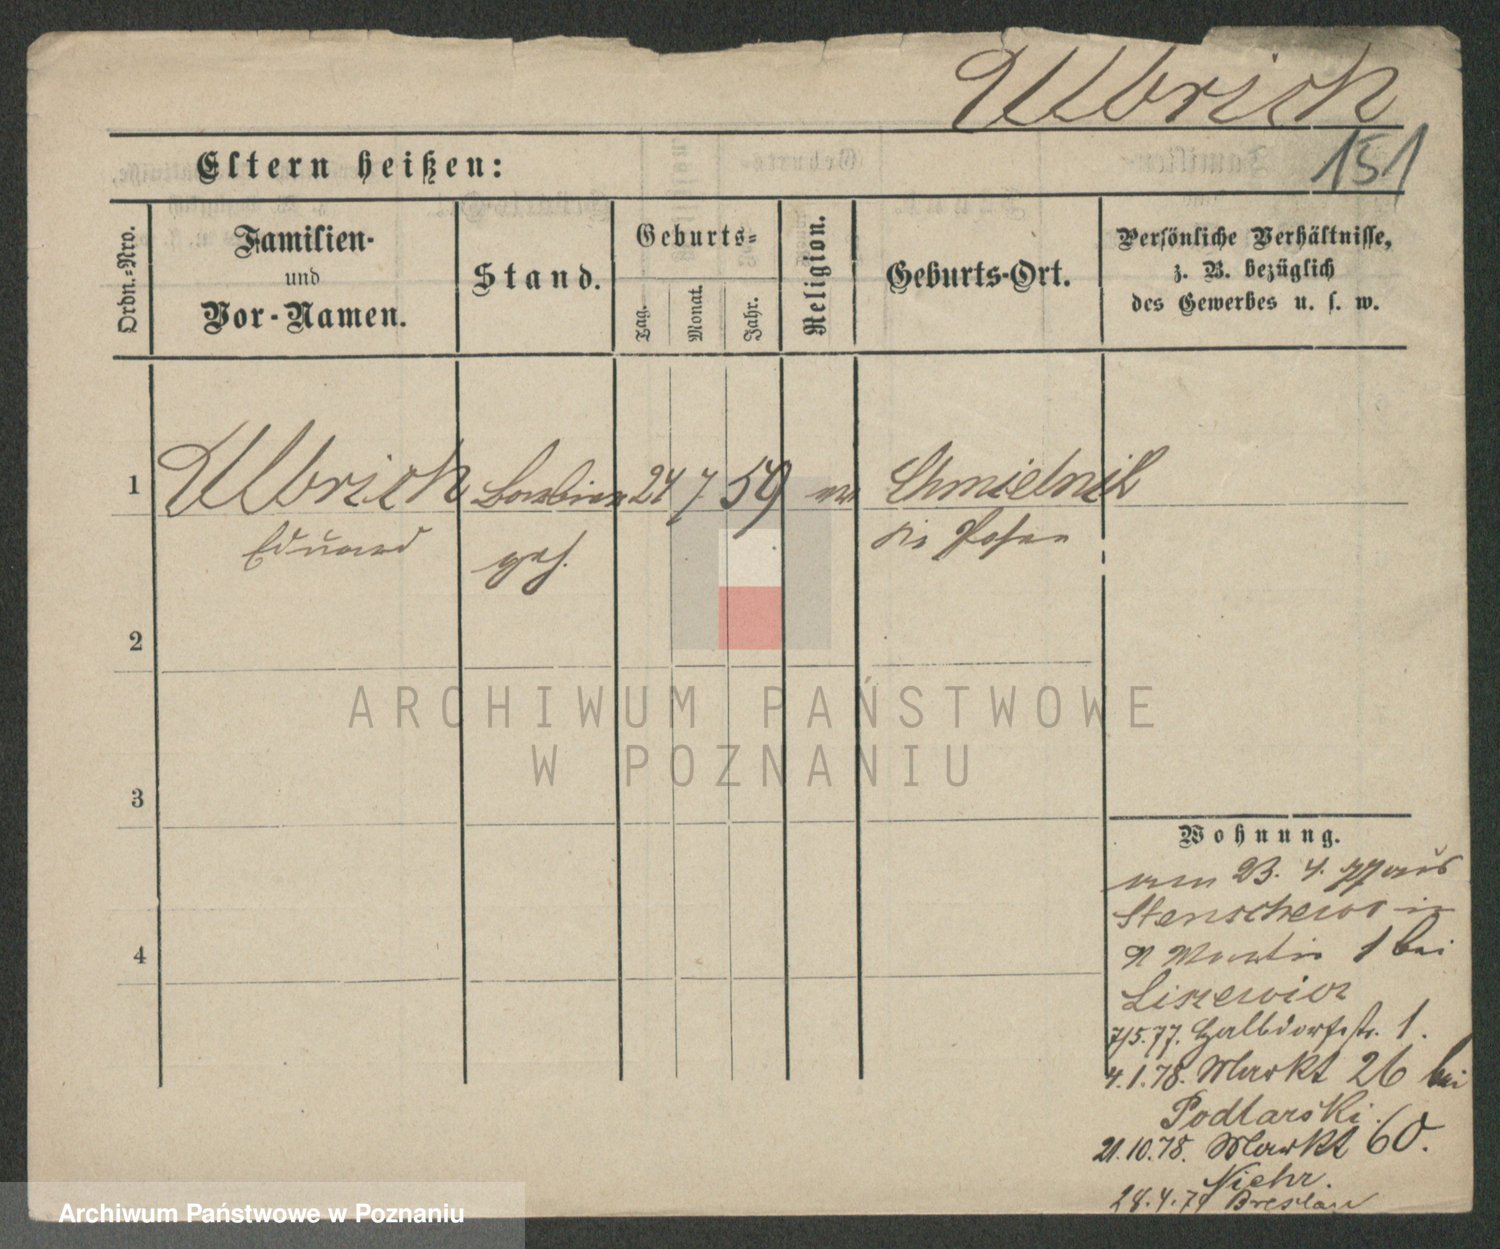 Ulbrich
151
Eltern heißen:
Ordn.=Nro.
Familien-
und
Vor-Namen.
Stand.
Geburts=
Tag.
Monat.
Jahr.
Religion.
Geburts-Ort.
Persönliche Verhältnisse,
z. B. bezüglich
des Gewerbes u. s. w.
1
Ulbrich
Eduard
Barbier
geh.
24
7
59
ev
Chmielnik
Krs Posen
2
3
4
Wohnung.
am 23. 4. 77 aus
Stenschewo in
St Martin 1 bei
Liszewicz
7/5.77. Halbdorfstr. 1.
4.1.78. Markt 26 bei
Podlarski.
21.10.78. Markt 60.
Niehr.
28.4.79 Breslau
ARCHIWUM PAŃSTWOWE
W POZNANIU
Archiwum Państwowe w Poznaniu